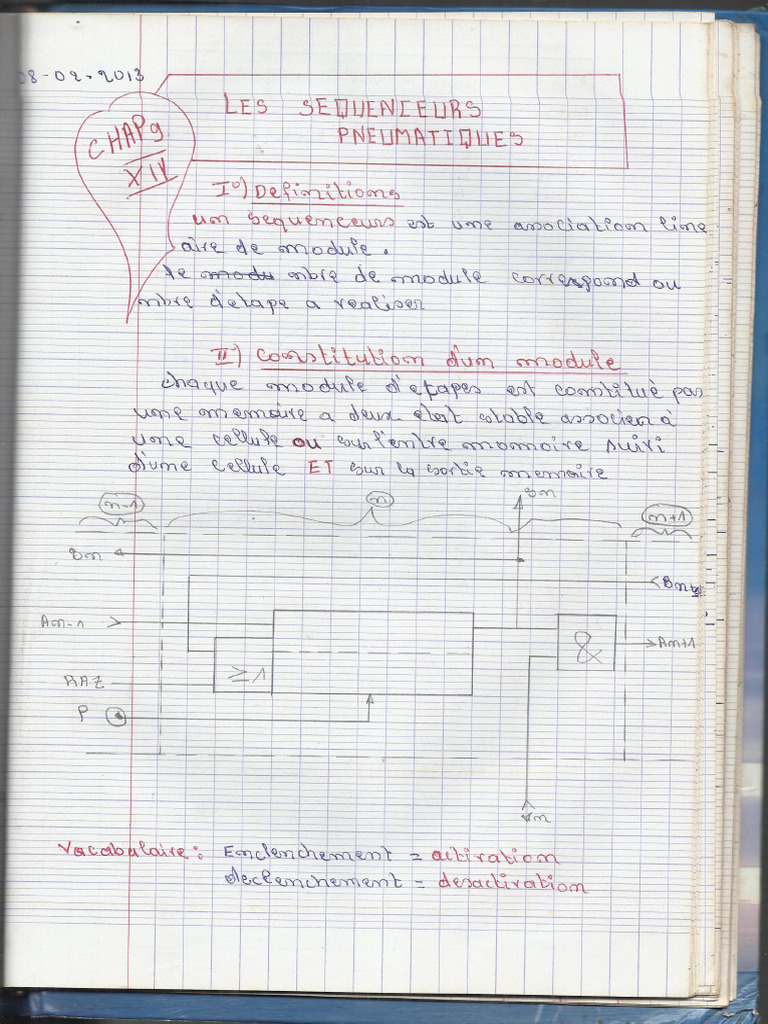 08-02-2013
LES SEQUENCEURS
PNEUMATIQUES
CHAP9
XIV
I°) Definitions
un sequenceurs est une association line
aire de module.
le modu mbre de module correspond ou
mbre d'etape a realiser
II) constitution d'un module
chaque module d'etapes est constitué par
une memoire a deux etat stable associen à
une cellule ou sur l'entre momoire suivi
d'une cellule ET sur la sortie memoire
n-1 n Bn n+1
Bn
Bn+1
An-1
& An+1
RAZ ≥1
P
Vocabulaire: Enclenchement = activation
declenchement = desactivation